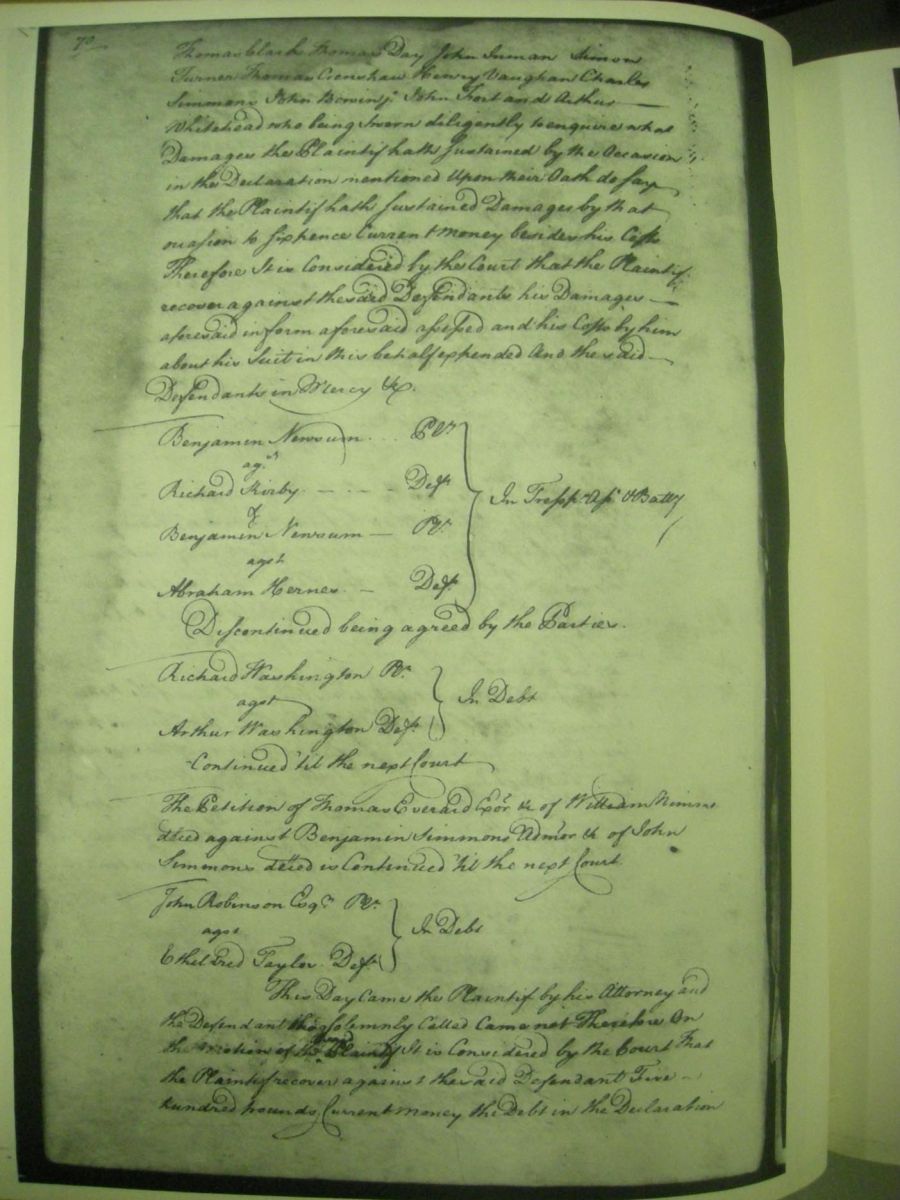 70
Thomas Clark Thomas Day John Inman Simon
Turner Thomas Crenshaw Henry Vaughan Charles
Simmons John Bowing Jr John Trot and Arthur
Whitehead who being Sworn diligently to enquire what
Damages the Plaintif hath Sustained by the Occasion
in the Declaration mentioned Upon their Oath do say
that the Plaintif hath Sustained Damages by that
occasion to Sixpence Current money besides his Costs
Therefore It is Considered by the Court that the Plaintif
recover against the said Defendants his Damages
aforesaid in form aforesaid assessed and his Costs by him
about his Suit in this behalf expended And the said
Defendants in Mercy &c.
Benjamin Newsum Plr.
agst
Richard Kirby Deft
&
Benjamin Newsum Plr.
agst
Abraham Hernes Deft
In Tresps. Asst. & Battry
Discontinued being agreed by the Parties.
Richard Washington Plr.
agst
Arthur Washington Deft.
In Debt
Continued 'til the next Court
The Petition of Thomas Everard Exor &c of William Nimmo
deced against Benjamin Simmons Admor &c of John
Simmons deced is Continued 'til the next Court
John Robinson Esqr. Plr.
agst
Etheldred Taylor Deft
In Debt
This Day Came the Plaintif by his Attorney and
the Defendant tho solemnly Called Came not Therefore On
the motion of the Plaintif It is Considered by the Court that
the Plaintif recover against the said Defendant Five
hundred pounds Current money the Debt in the Declaration